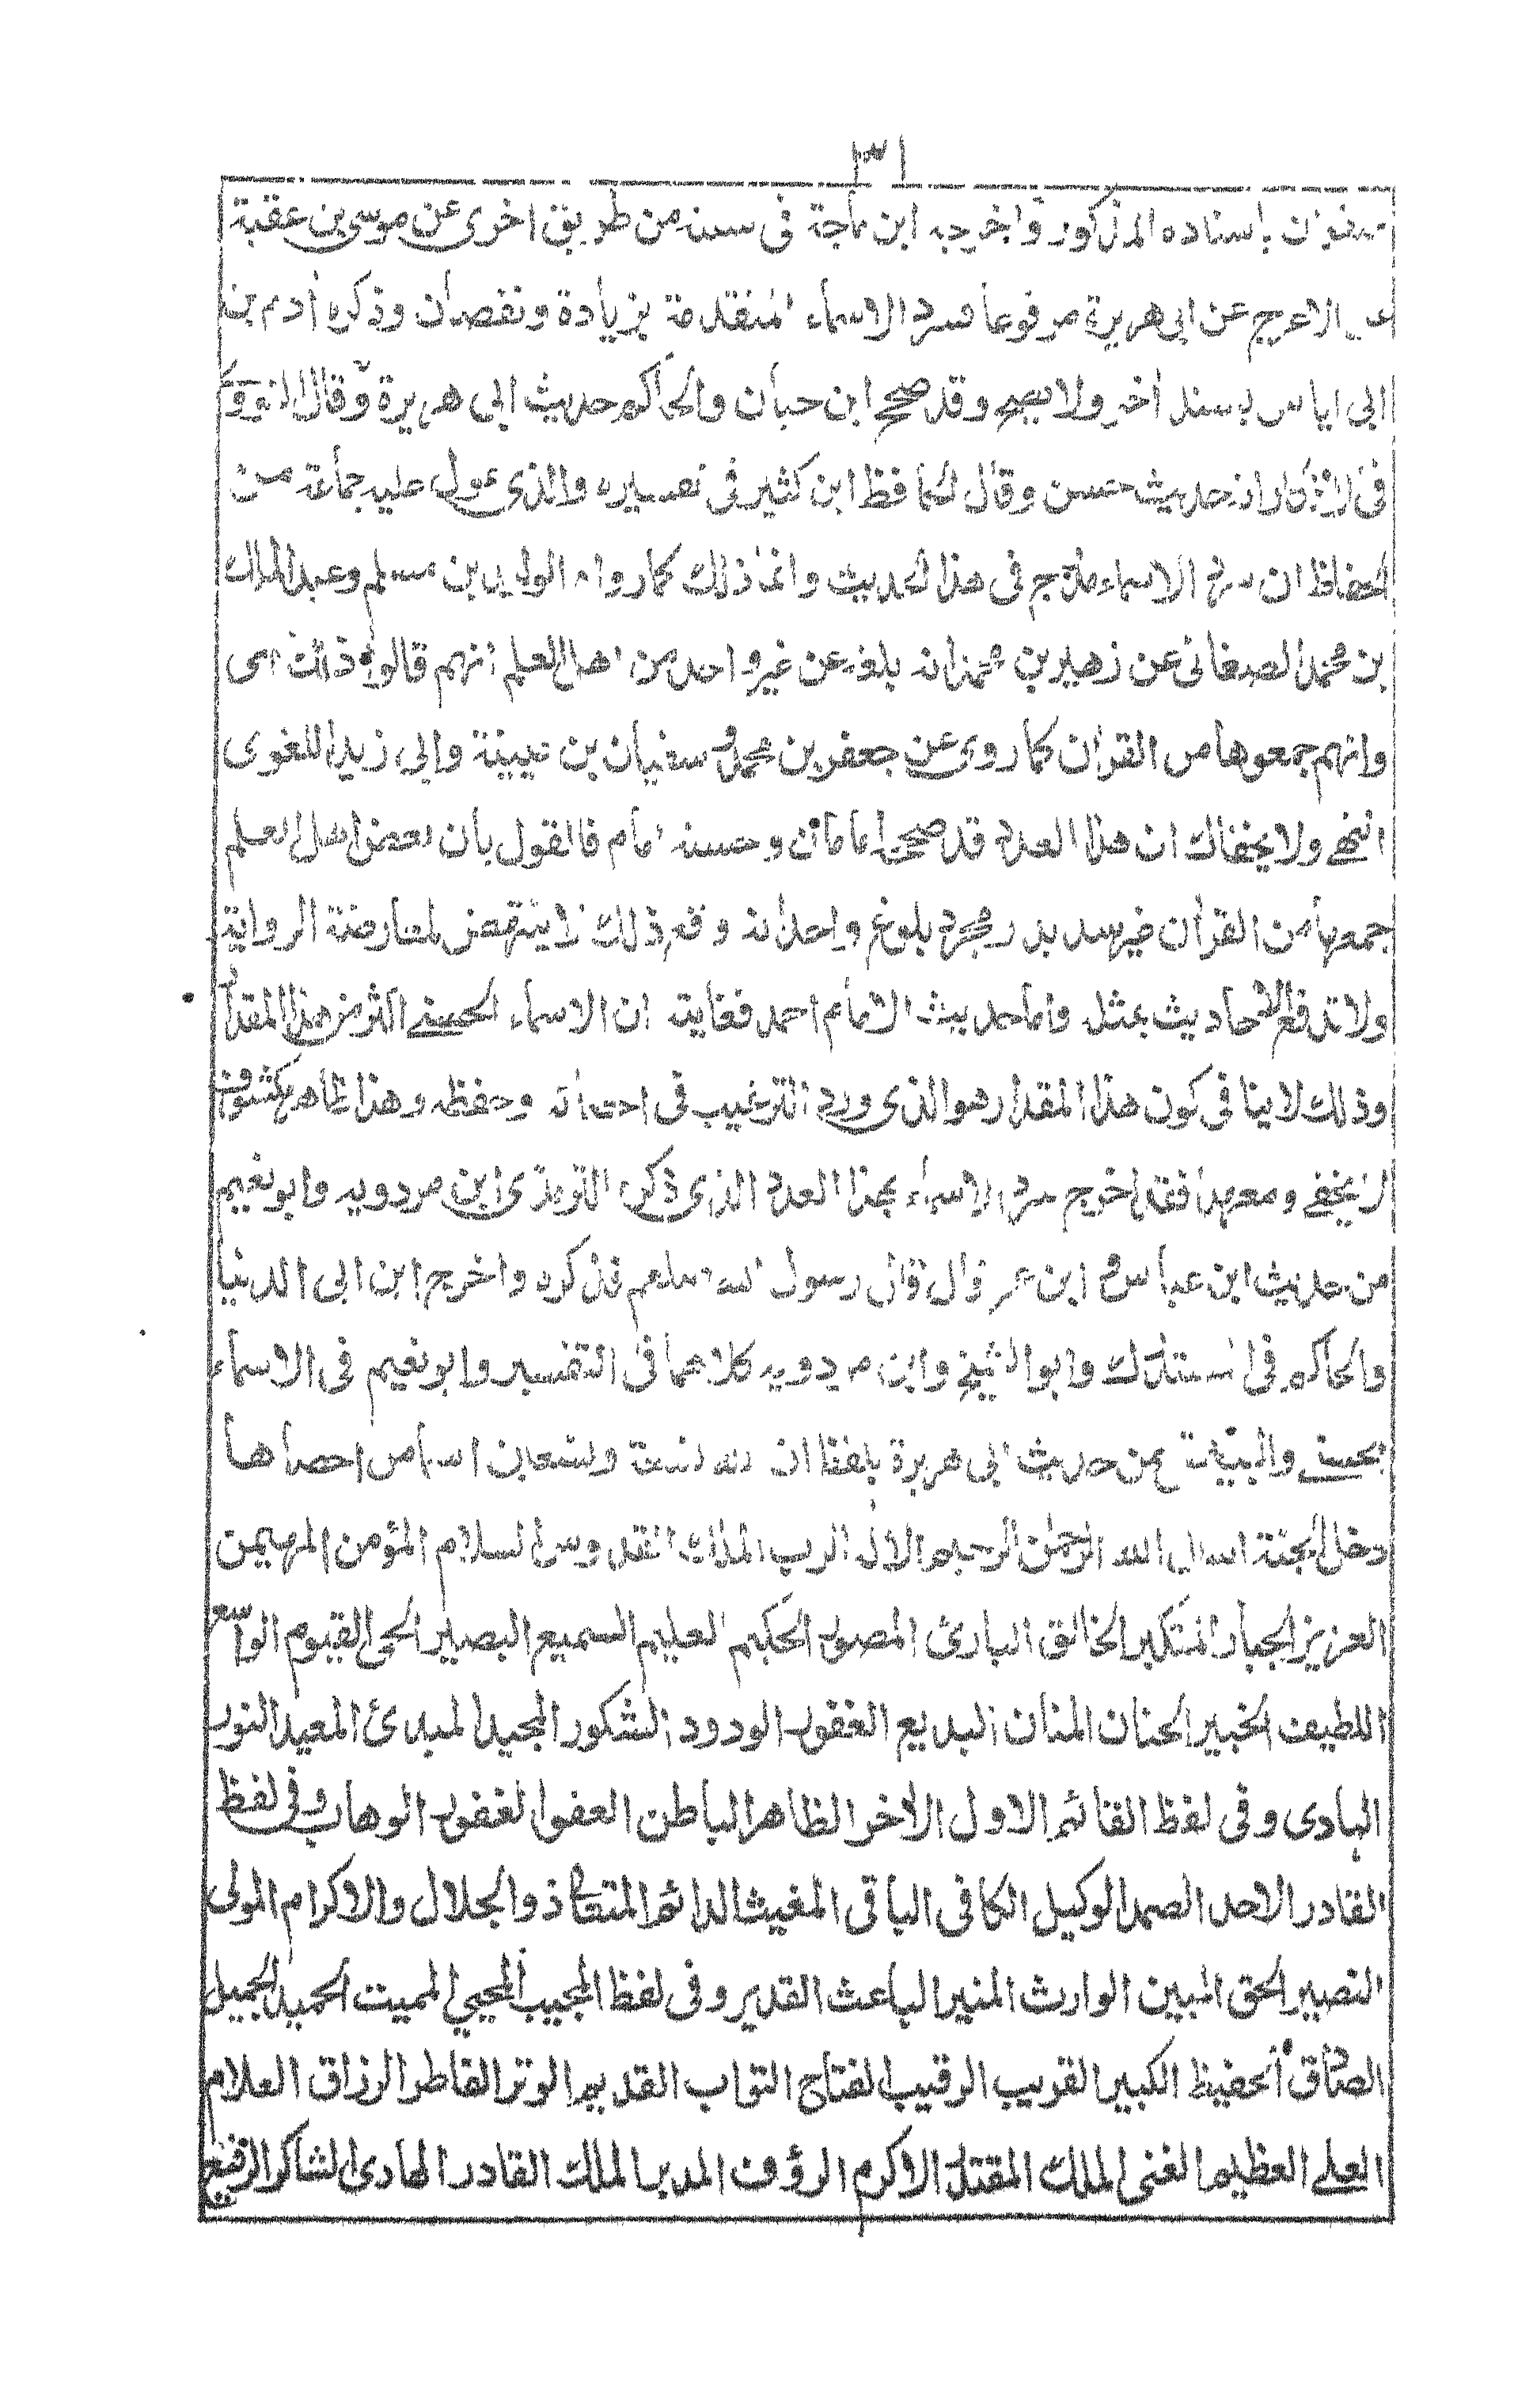 ١٣١
صفوان باسناده المذكور واخرجه ابن ماجة فى سننه من طريق اخرى عن موسى بن عقبة
عن الاعرج عن ابى هريرة مرفوعا فسرد الاسماء المتقدمة بزيادة ونقصان وذكره أدم بن
ابى اياس بسند أخر ولا يصح وقد صححه ابن حبان والحاكم حديث ابى هريرة وقال النووى
فى الاذكار انه حديث حسن وقال الحافظ ابن كثير فى تفسيره والذى عول عليه جماعة من
الحفاظ ان سرد الاسماء مدرج فى هذا الحديث وانما ذلك كما رواه الوليد بن مسلم وعبد الملك
بن محمد الصغانى عن زهير بن محمد انه بلغه عن غير واحد من اهل العلم انهم قالوا ذلك اى
وانهم جمعوها من القرأن كما روى عن جعفر بن محمد وسفيان بن عيينة وابى زيد اللغوى
انتهى ولا يخفاك ان هذا العدد قد صححه امامان وحسنه امام فالقول بان بعض اهل العلم
جمعها من القرأن غير سديد ومجرد بلوغ واحد انه وقع ذلك لا ينتهض لمعارضة الرواية
ولا تدفع الاحاديث بمثله واما حديث الامام احمد فغايته ان الاسماء الحسنى اكثر من هذا المقدار
وذلك لا ينا فى كون هذا المقدار هو الذى ورد الترغيب فى احصائه وحفظه وهذا ظاهر مكشوف
لا يخفى ومع هذا فقد اخرج سرد الاسماء بهذا العدد الذى ذكره الترمذى ابن مردويه وابو نعيم
من حديث ابن عباس و ابن عمر قال قال رسول الله صلعم فذكره واخرج ابن ابى الدنيا
والحاكم فى المستدرك وابو الشيخ وابن مردويه كلاهما فى التفسير وابو نعيم فى الاسماء
الحسنى والبيهقى من حديث ابى هريرة بلفظ ان لله تسعة وتسعين اسما من احصاها
دخل الجنة اسأل الله الرحمن الرحيم الاله الرب الملك القدوس السلام المؤمن المهيمن
العزيز الجبار المتكبر الخالق البارئ المصور الحكيم العليم السميع البصير الحى القيوم الواسع
اللطيف الخبير الحنان المنان البديع الغفور الودود الشكور المجيد المبدئ المعيد النور
البادى وفى لفظ القائم الاول الأخر الظاهر الباطن العفو الغفور الوهاب وفى لفظ
القادر الاحد الصمد الوكيل الكافى الباقى المغيث الدائم المتعال ذو الجلال والاكرام المولى
النصير الحق المبين الوارث المنير الباعث القدير وفى لفظ المجيب المحيي المميت الحميد الجميل
الصادق الحفيظ الكبير القريب الرقيب الفتاح التواب القديم الوتر الفاطر الرزاق العلام
العلى العظيم الغنى الملك المقتدر الاكرم الرؤف المدبر الملك القادر الهادى الشاكر الرفيع